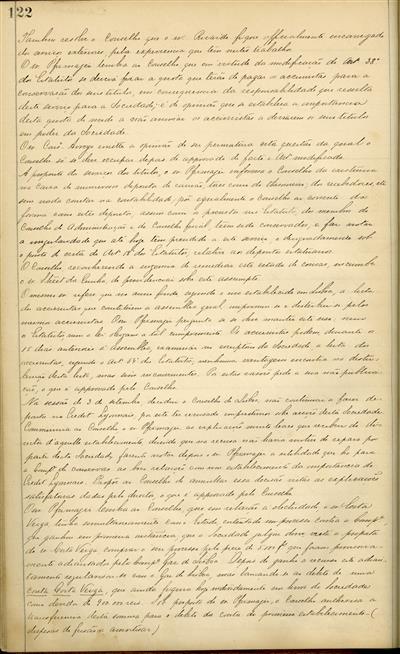 122
Tambem resolve o Conselho que o snr Ricardo fique officialmente encarregado
do serviço exterior, pela experiencia que tem neste trabalho.
O snr Pfismager lembra ao Conselho que em virtude da modificação do Art. 38º
dos Estatutos se deveria fixar a quota que terão de pagar os accionistas para a
conservação dos seus titulos, em consequencia da responsabilidade que resulta
deste serviço para a Sociedade; é de opinião que se estabeleça a importancia
desta quota de modo a não animar os accionistas a deixarem os seus titulos
em poder da Sociedade.
O snr Arroyo emitte a opinião de ser prematura esta questão da qual o
Conselho só se deve occupar depois de approvado de facto o Art. modificado.
A proposito do serviço dos titulos, o snr Pfismager informou o Conselho da existencia
na Caixa de numerosos depositos de caução, taes como do thesoureiro, dos recebedores, etc
sem nada constar na contabilidade; por egualmente o Conselho ao corrente da
forma como estes depositos, assim como os previstos nos Estatutos, dos membros do
Conselho de Administração e do Conselho fiscal, teem sido conservados, e faz notar
a irregularidade que até hoje tem presidido a este serviço e designadamente sob
o ponto de vista do Art. 18 dos Estatutos, relativo aos depositos estatutarios.
O Conselho reconhecendo a urgencia de remediar este estado de cousas, incumbe
o snr da Cunha, de providenciar sobre este assumpto.
O mesmo snr refere que nos annos findos segundo o uso estabelecido em Lisboa, a lista
dos accionistas que constituem a assemblêa geral, imprimia-se e distribuia-se pelos
mesmos accionistas. O snr Pfismager pergunta se se deve manter este uso, visto
os Estatutos, nem a lei exigirem o dito cumprimento. Os accionistas podem, durante os
15 dias anteriores á Assemblêa, examinar no escriptorio da Sociedade a lista dos
accionistas, segundo o Art. 55 dos Estatutos, nenhuma vantagem encontra na distri-
buição desta lista, mas sim inconvenientes. Por estas razões pede a sua não publica-
ção, o que é approvado pelo Conselho.
Na sessão de 3 de setembro decidiu o Conselho de Lisboa não continuar a fazer de-
positos no Credit Lyonnais, por este ter recusado emprestimos sobre acções desta Sociedade.
Communica ao Conselho o snr Pfismager as explicações muito leaes que recebeu do Di-
rector d'aquelle estabelecimento dizendo que na recusa não havia motivo de reparo por
parte desta Sociedade, fazendo notar depois o snr Pfismager a utilidade que ha para
a Compª. de conservar as boas relações com um estabelecimento da importancia do
Credit Lyonnais. Propõe ao Conselho de annullar essa decisão vistas as explicações
satisfatorias dadas pelo director, o que é approvado pelo Conselho.
O snr Pfismager lembra ao Conselho, que em relação á electricidade, o snr Costa
Veiga, tendo simultaneamente com o Estado, intentado um processo contra a Compª.,
que ganhou em primeira instancia, que a Sociedade julgou dever aceitar a proposta
do snr Costa Veiga comprar o seu processo pelo preço de que foram provisoria-
mente adiantados pela Compª. Gaz de Lisboa. Depois de ganho o recurso este adian-
tamento regularisou-se com o Gaz de Lisboa, mas lançando-se ao debito de uma
conta Costa Veiga, que ainda figura hoje indevidamente nos livros da Sociedade
como devedor de 900.000 reis. Sob proposta do snr Pfismager, o Conselho authorisa a
transferencia desta somma para o debito da conta de primeiro estabelecimento (
despesas de fusão a amortisar)